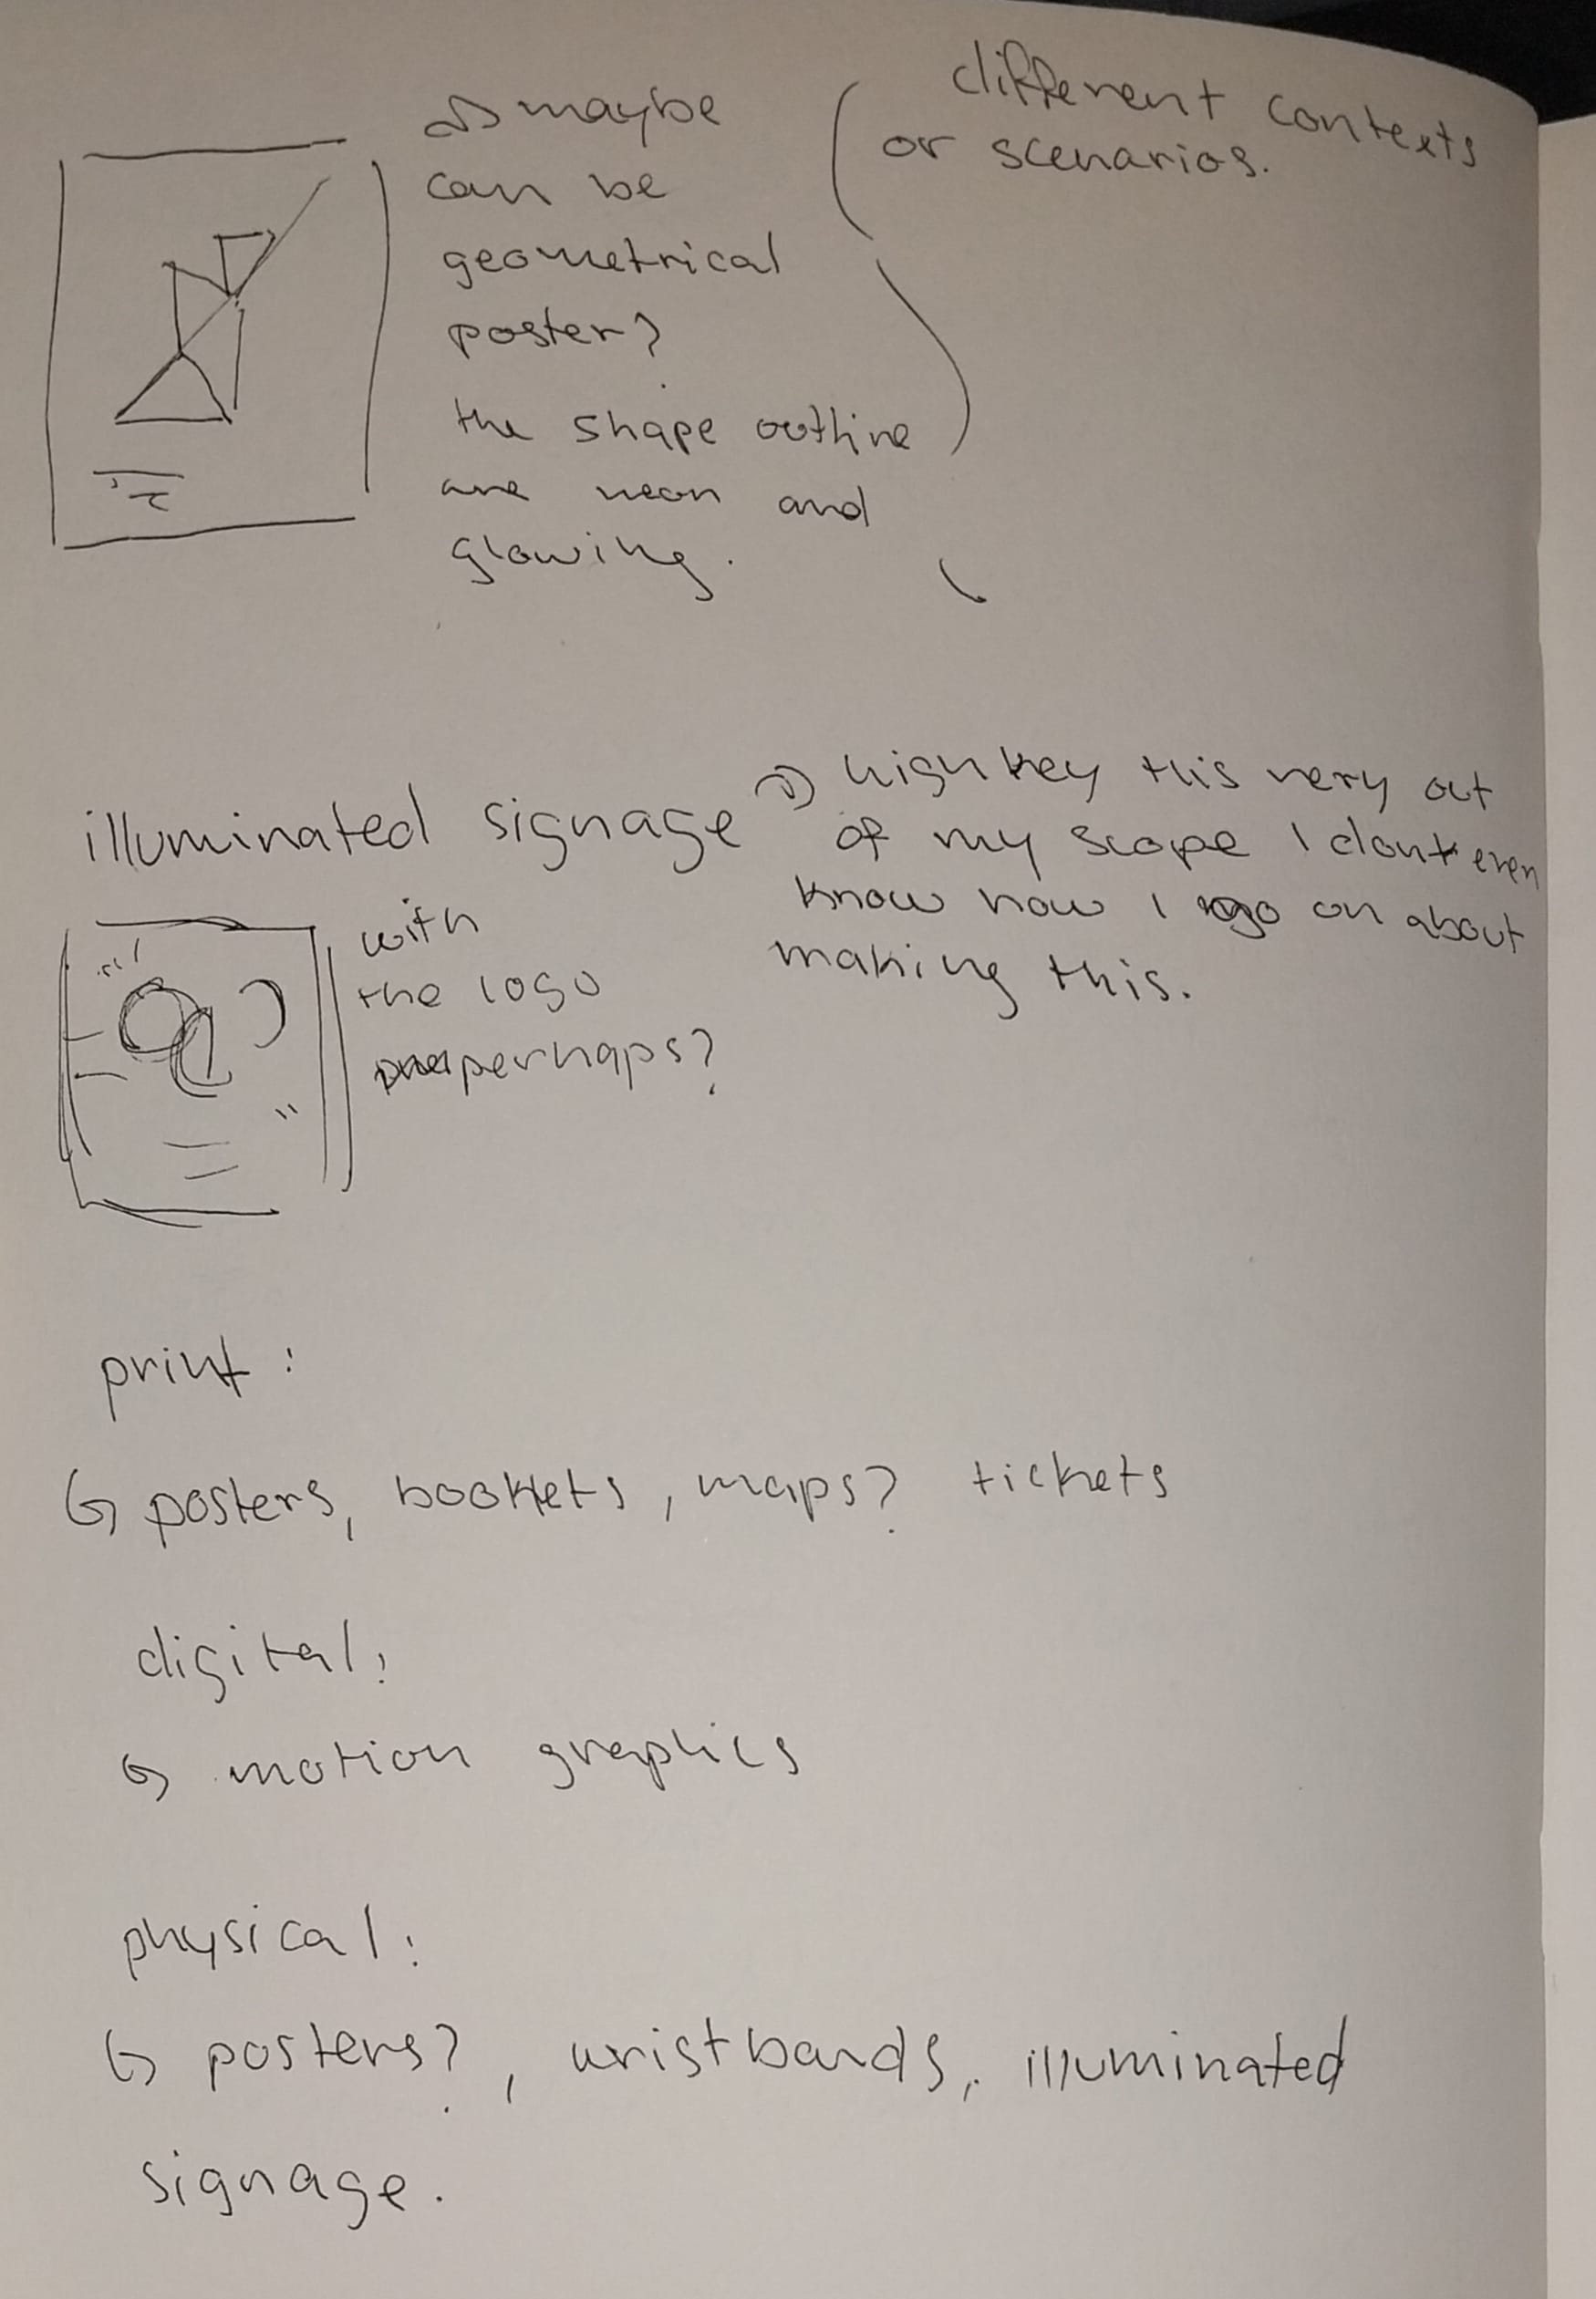 maybe
can be
geometrical
poster?
the shape outline
are neon and
glowing.
different contexts
or scenarios.
illuminated signage
highkey this very out
of my scope I dont even
know how I go on about
making this.
with
the logo
perhaps?
print:
posters, booklets, maps? tickets
digital:
motion graphics
physical:
posters?, wristbands, illuminated
signage.